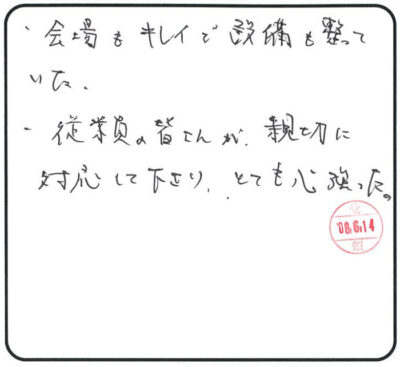 ・会場もキレイで設備も整って
いた.
・従業員の皆さんが、親切に
対応して下さり、とても心強った。
'08.6.14
館